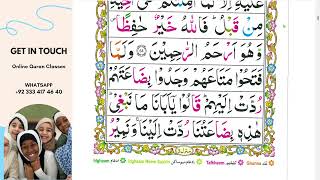 GET IN TOUCH
Online Quran Classes
WHATSAPP
+92 333 417 46 40
عَلَيْهِ اِلَّا كَمَآ اَمِنْتُكُمْ عَلٰٓى اَخِيْهِ
مِنْ قَبْلُ ؕ فَاللّٰهُ خَيْرٌ حٰفِظًا ۪
وَّهُوَ اَرْحَمُ الرّٰحِمِيْنَ ۝۶۴ وَلَمَّا
فَتَحُوْا مَتَاعَهُمْ وَجَدُوْا بِضَاعَتَهُمْ
رُدَّتْ اِلَيْهِمْ ؕ قَالُوْا يٰٓاَبَانَا مَا نَبْغِيْ ؕ
هٰذِهٖ بِضَاعَتُنَا رُدَّتْ اِلَيْنَا ۚ وَنَمِيْرُ
Idgham ادغام
Idghaam Meem Saakin ادغام میم ساکن
Tafkheem تفخیم
Ghunna غنہ